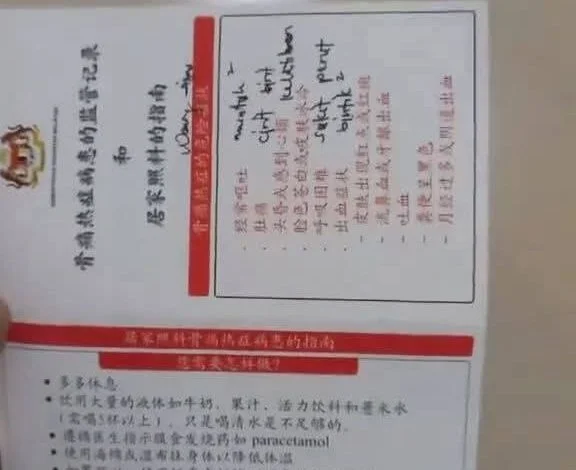 骨痛热症病患的监管记录
和
居家照料的指南
骨痛热症的危险症状
muntah 2
· 经常呕吐
cirit birit
· 肚痛
keletihan
· 头昏或感到心
sakit perut
· 脸色苍白或皮肤冰冷
· 呼吸困难
bintik 2
· 出血症状
- 皮肤出现红点或红斑
- 流鼻血或牙龈出血
- 吐血
- 粪便呈黑色
- 月经过多或阴道出血
居家照料骨痛热症病患的指南
您需要怎样做?
• 多多休息
• 饮用大量的液体如牛奶、果汁、活力饮料和薏米水
(需喝5杯以上), 只是喝清水是不足够的。
• 遵循医生指示服食发烧药如 paracetamol
• 使用海棉或湿布抹身体以降低体温